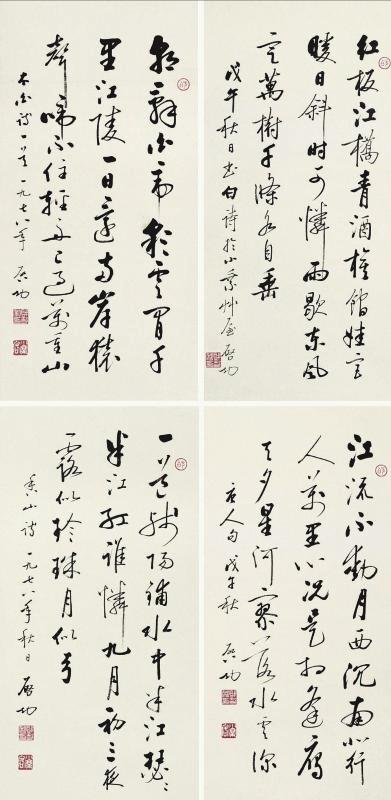 红板江橋青酒旗館娃宫
暖日斜時可憐雨歇东風
定萬樹千條各自垂
戊午秋日书白诗於小乘艸屋 启功
朝辭白帝彩雲间千
里江陵一日還两岸猿
聲啼不住輕舟已過萬重山
太白诗一首 一九七八年 启功
江流不動月西沉南北行
人萬里心况是相逢雁
天夕星河寥落水雲深
唐人句 戊午秋 启功
一道残陽鋪水中半江瑟瑟
半江红誰憐九月初三夜
露似珍珠月似弓
香山诗 一九七八年秋日 启功